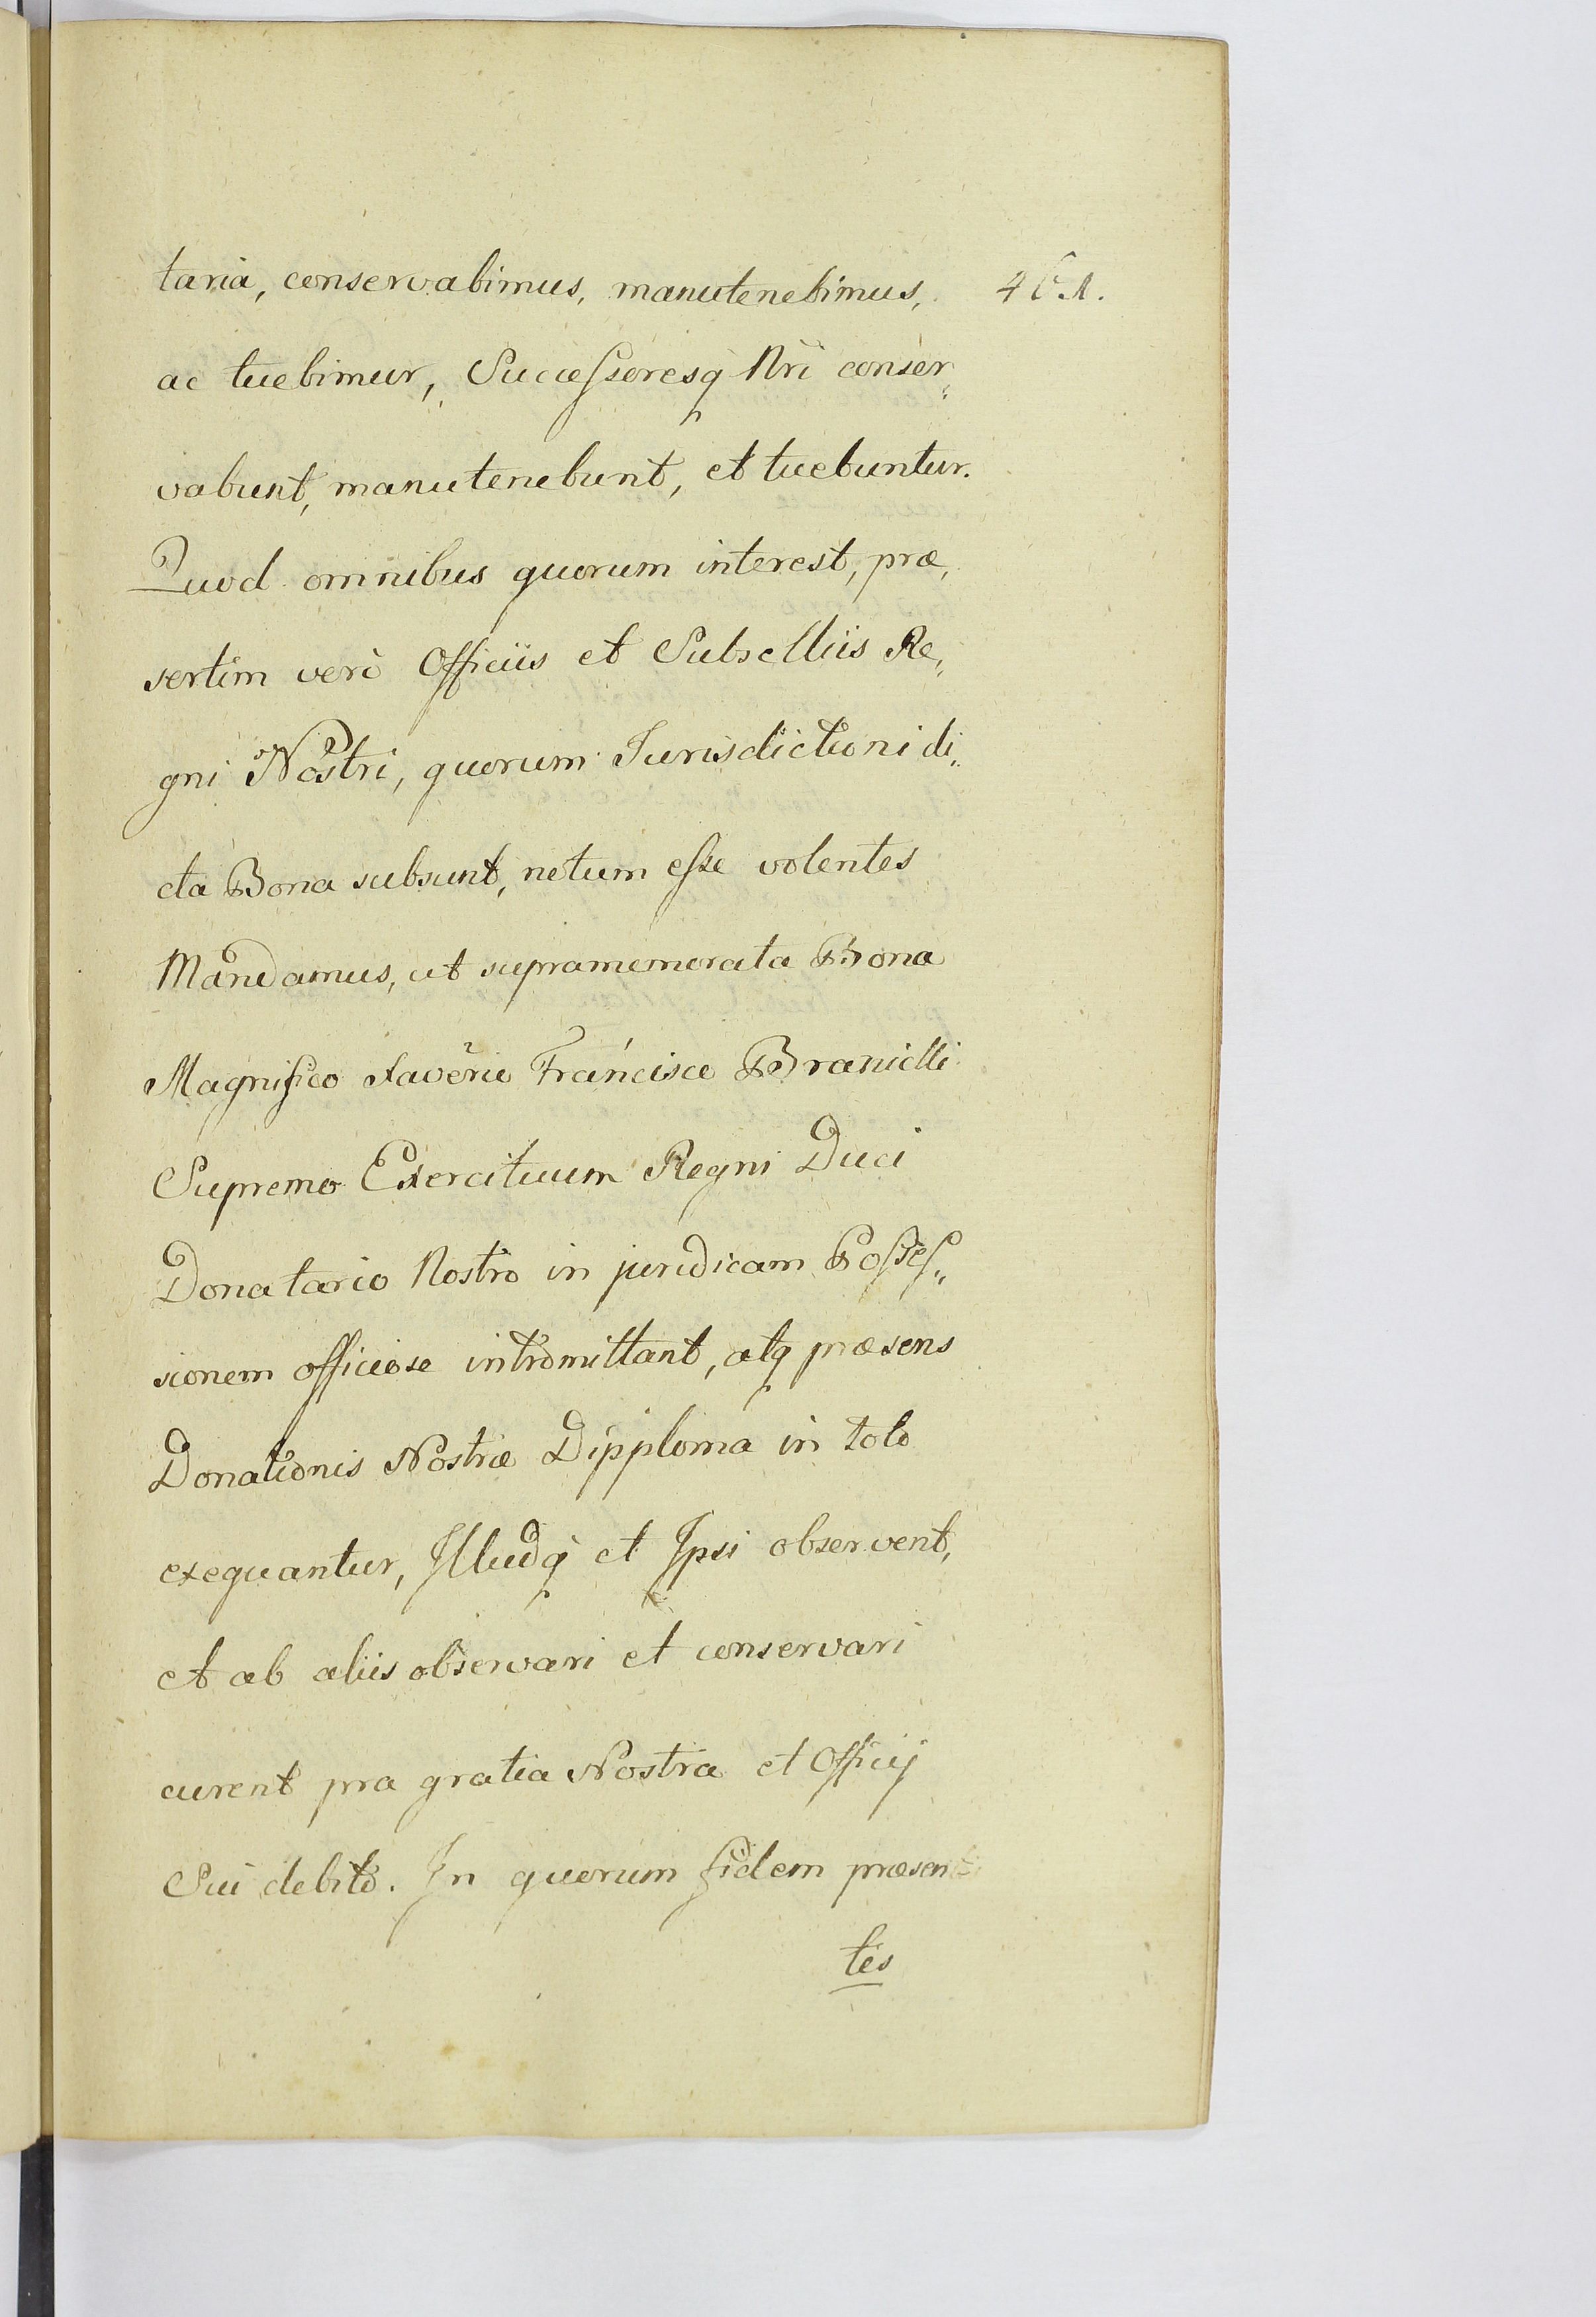 taria, conservabimus, manutenebimus,
ac tuebimur, Successoresq Nri conser„
vabunt, manutenebunt, et tuebuntur.
Quod omnibus quorum interest, præ„
sertim verò Officiis et Subselliis Re„
gni Nostri, quorum Jurisdictioni di„
cta Bona subsunt, notum esse volentes
Mandamus, ut supramemorata Bona
Magnifico Xaverio Francisco Branicki
Supremo Exercituum Regni Duci
Donatario Nostro in juridicam Posses„
sionem officiose intromittant, atq præsens
Donationis Nostræ Dipploma in toto
exequantur, Illudq et Ipsi observent,
et ab aliis observari et conservari
curent pra gratia Nostra et Officij
Sui debito. In quorum fidem præsen
tes